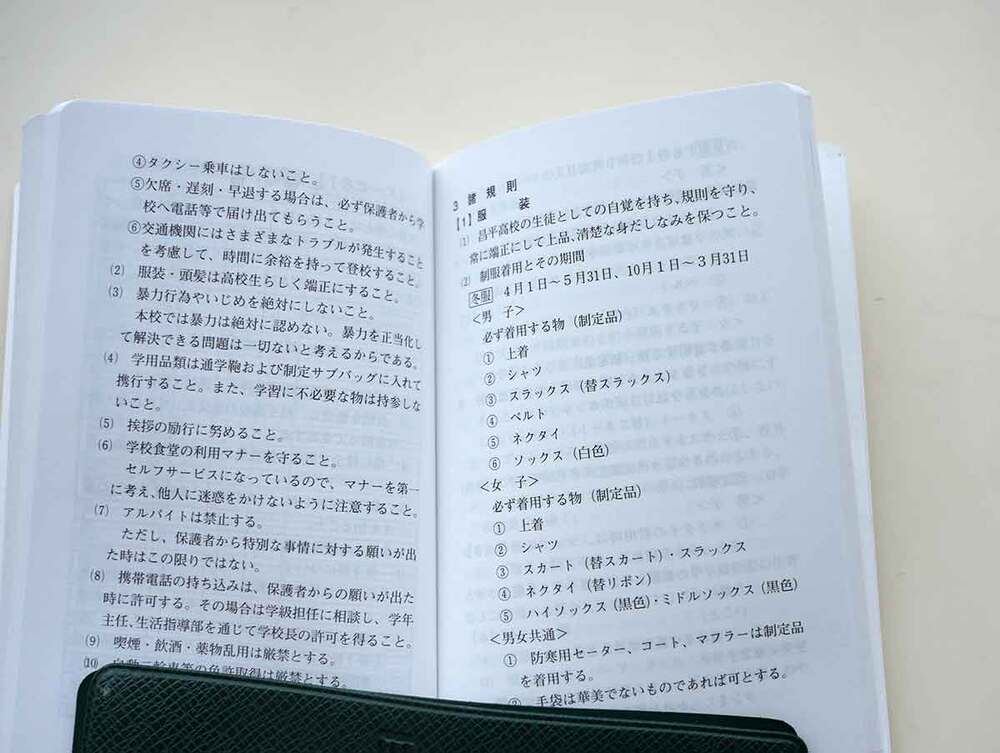 ④タクシー乗車はしないこと。
⑤欠席・遅刻・早退する場合は、必ず保護者から学
校へ電話等で届け出てもらうこと。
⑥交通機関にはさまざまなトラブルが発生すること
を考慮して、時間に余裕を持って登校すること。
(2) 服装・頭髪は高校生らしく端正にすること。
(3) 暴力行為やいじめを絶対にしないこと。
本校では暴力は絶対に認めない。暴力を正当化し
て解決できる問題は一切ないと考えるからである。
(4) 学用品類は通学鞄および制定サブバッグに入れて
携行すること。また、学習に不必要な物は持参しな
いこと。
(5) 挨拶の励行に努めること。
(6) 学校食堂の利用マナーを守ること。
セルフサービスになっているので、マナーを第一
に考え、他人に迷惑をかけないように注意すること。
(7) アルバイトは禁止する。
ただし、保護者から特別な事情に対する願いが出
た時はこの限りではない。
(8) 携帯電話の持ち込みは、保護者からの願いが出た
時に許可する。その場合は学級担任に相談し、学年
主任、生活指導部を通じて学校長の許可を得ること。
(9) 喫煙・飲酒・薬物乱用は厳禁とする。
(10) 自動二輪車等の免許取得は厳禁とする。
3 諸規則
【1】服装
(1) 昌平高校の生徒としての自覚を持ち、規則を守り、
常に端正にして上品、清楚な身だしなみを保つこと。
(2) 制服着用とその期間
冬服 4月1日～5月31日、10月1日～3月31日
＜男 子＞
必ず着用する物（制定品）
① 上着
② シャツ
③ スラックス（替スラックス）
④ ベルト
⑤ ネクタイ
⑥ ソックス（白色）
＜女 子＞
必ず着用する物（制定品）
① 上着
② シャツ
③ スカート（替スカート）・スラックス
④ ネクタイ（替リボン）
⑤ ハイソックス（黒色）・ミドルソックス（黒色）
＜男女共通＞
① 防寒用セーター、コート、マフラーは制定品
を着用する。
② 手袋は華美でないものであれば可とする。